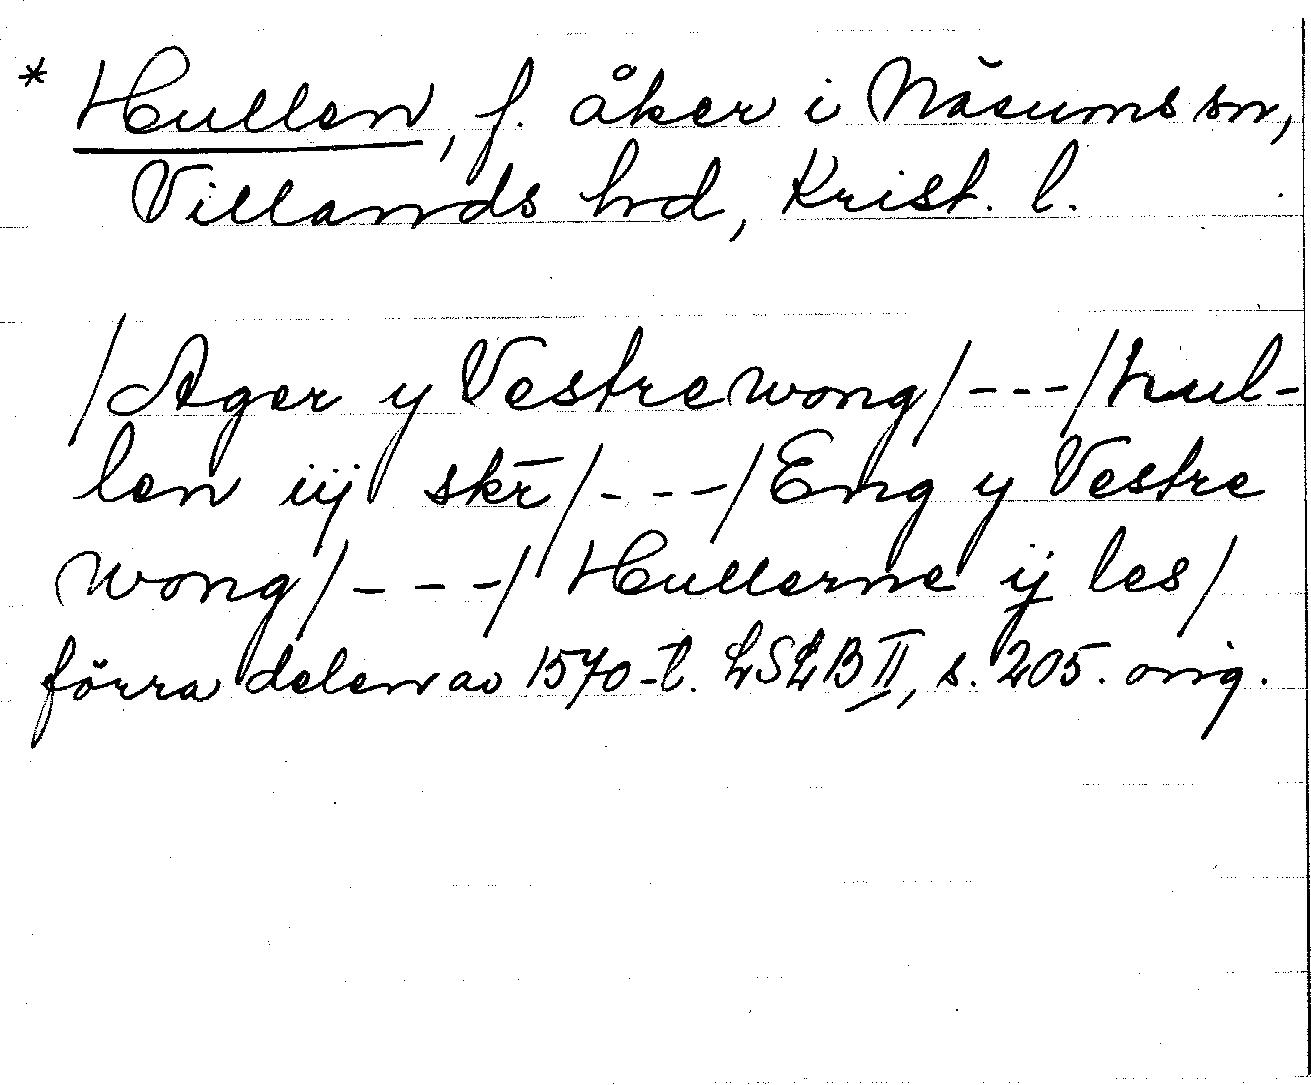 * Hullen, f. åker i Näsums sn,
Villands hd, Krist. l.
/Ager y Vestre wong/---/hul-
len iij skr̄/---/Eng y Vestre
wong/---/ Hullerne ij les/
förra delen av 1570-t. LSLB II, s. 205. orig.